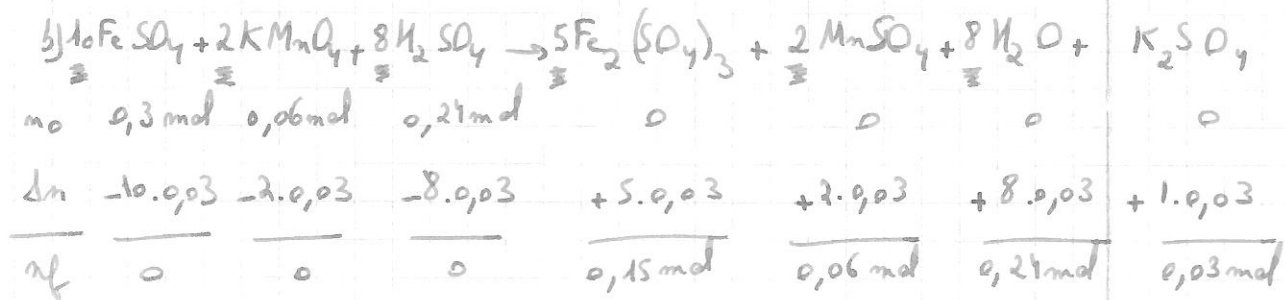 b) 10 FeSO4 + 2 KMnO4 + 8 H2SO4 → 5 Fe2(SO4)3 + 2 MnSO4 + 8 H2O + K2SO4
n0 0,3 mol 0,06 mol 0,24 mol 0 0 0 0
Δn -10.0,03 -2.0,03 -8.0,03 +5.0,03 +2.0,03 +8.0,03 +1.0,03
nf 0 0 0 0,15 mol 0,06 mol 0,24 mol 0,03 mol